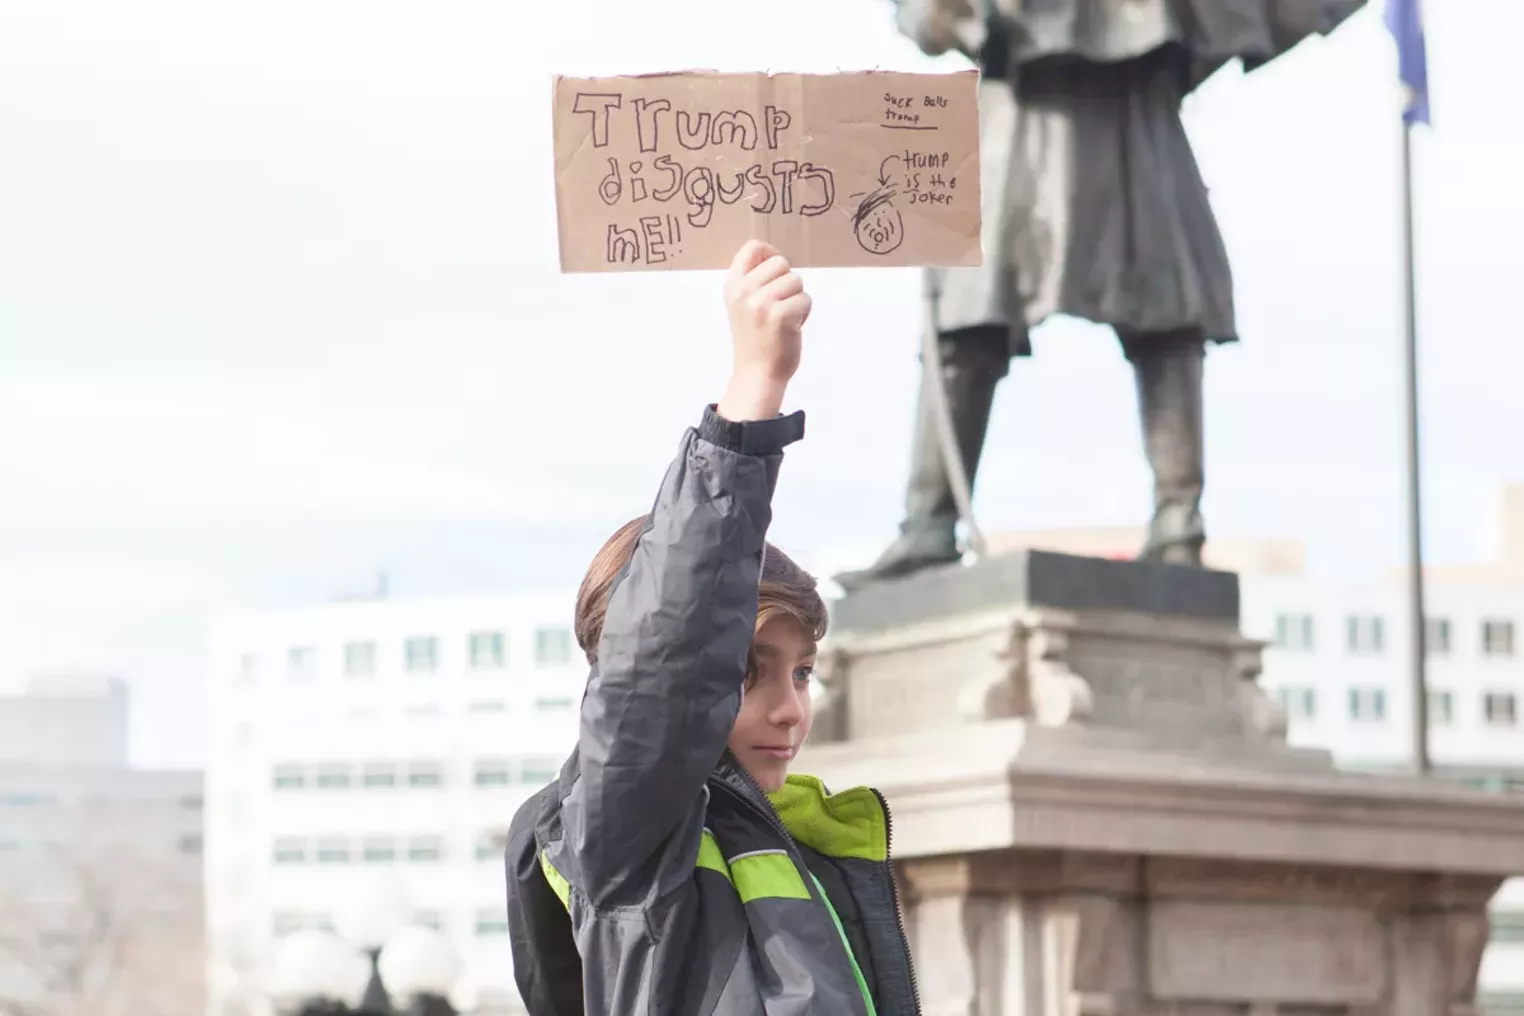 Trump
disgusts
mE!!
suck Balls
trump
trump
is the
joker